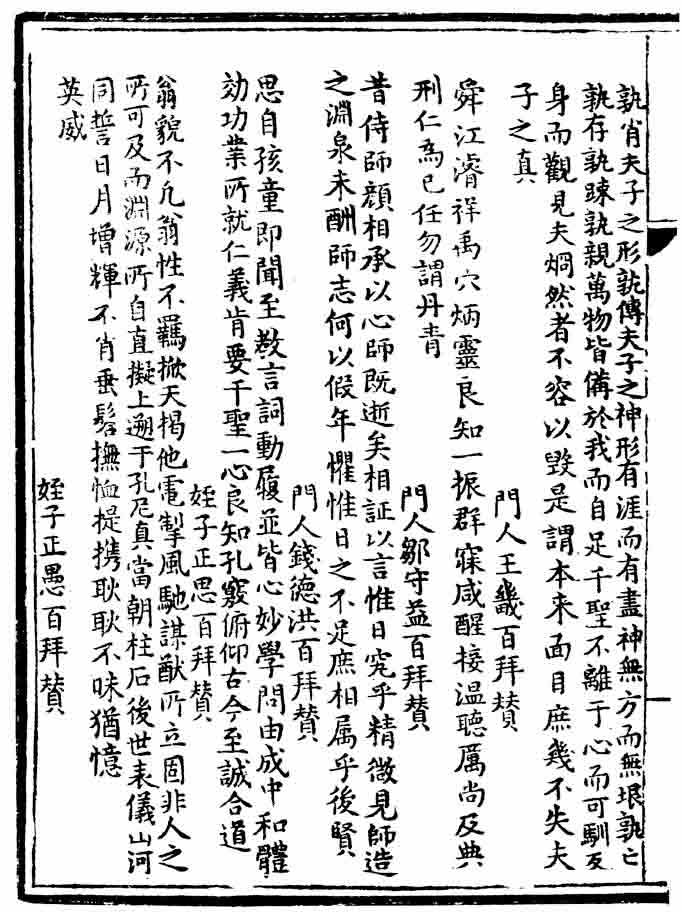 孰肖夫子之形孰傳夫子之神形有涯而有盡神無方而無垠孰亡
孰存孰踈孰親萬物皆俻於我而自足千聖不離于心而可馴反
身而觀見夫烱然者不容以毀是謂本来面目庶幾不失夫
子之真
門人王畿百拜賛
舜江濬祥禹穴炳靈良知一振群寐咸醒接温聽厲尚及典
刑仁為已任勿謂丹青
門人鄒守益百拜賛
昔侍師顔相承以心師既逝矣相証以言惟日究乎精微見師造
之淵泉未酬師志何以假年懼惟日之不足庶相属乎後賢
門人錢德洪百拜賛
思自孩童即聞至教言詞動履並皆心妙學問由成中和體
効功業所就仁義肯要千聖一心良知孔竅俯仰古今至誠合道
姪子正思百拜賛
翁貌不凢翁性不羈掀天揭他電掣風馳謀猷所立固非人之
所可及而淵源所自直擬上遡于孔尼真當朝柱石後世表儀山河
同誓日月增輝不肖垂髫撫恤提携耿耿不昧猶憶
英威
姪子正愚百拜賛